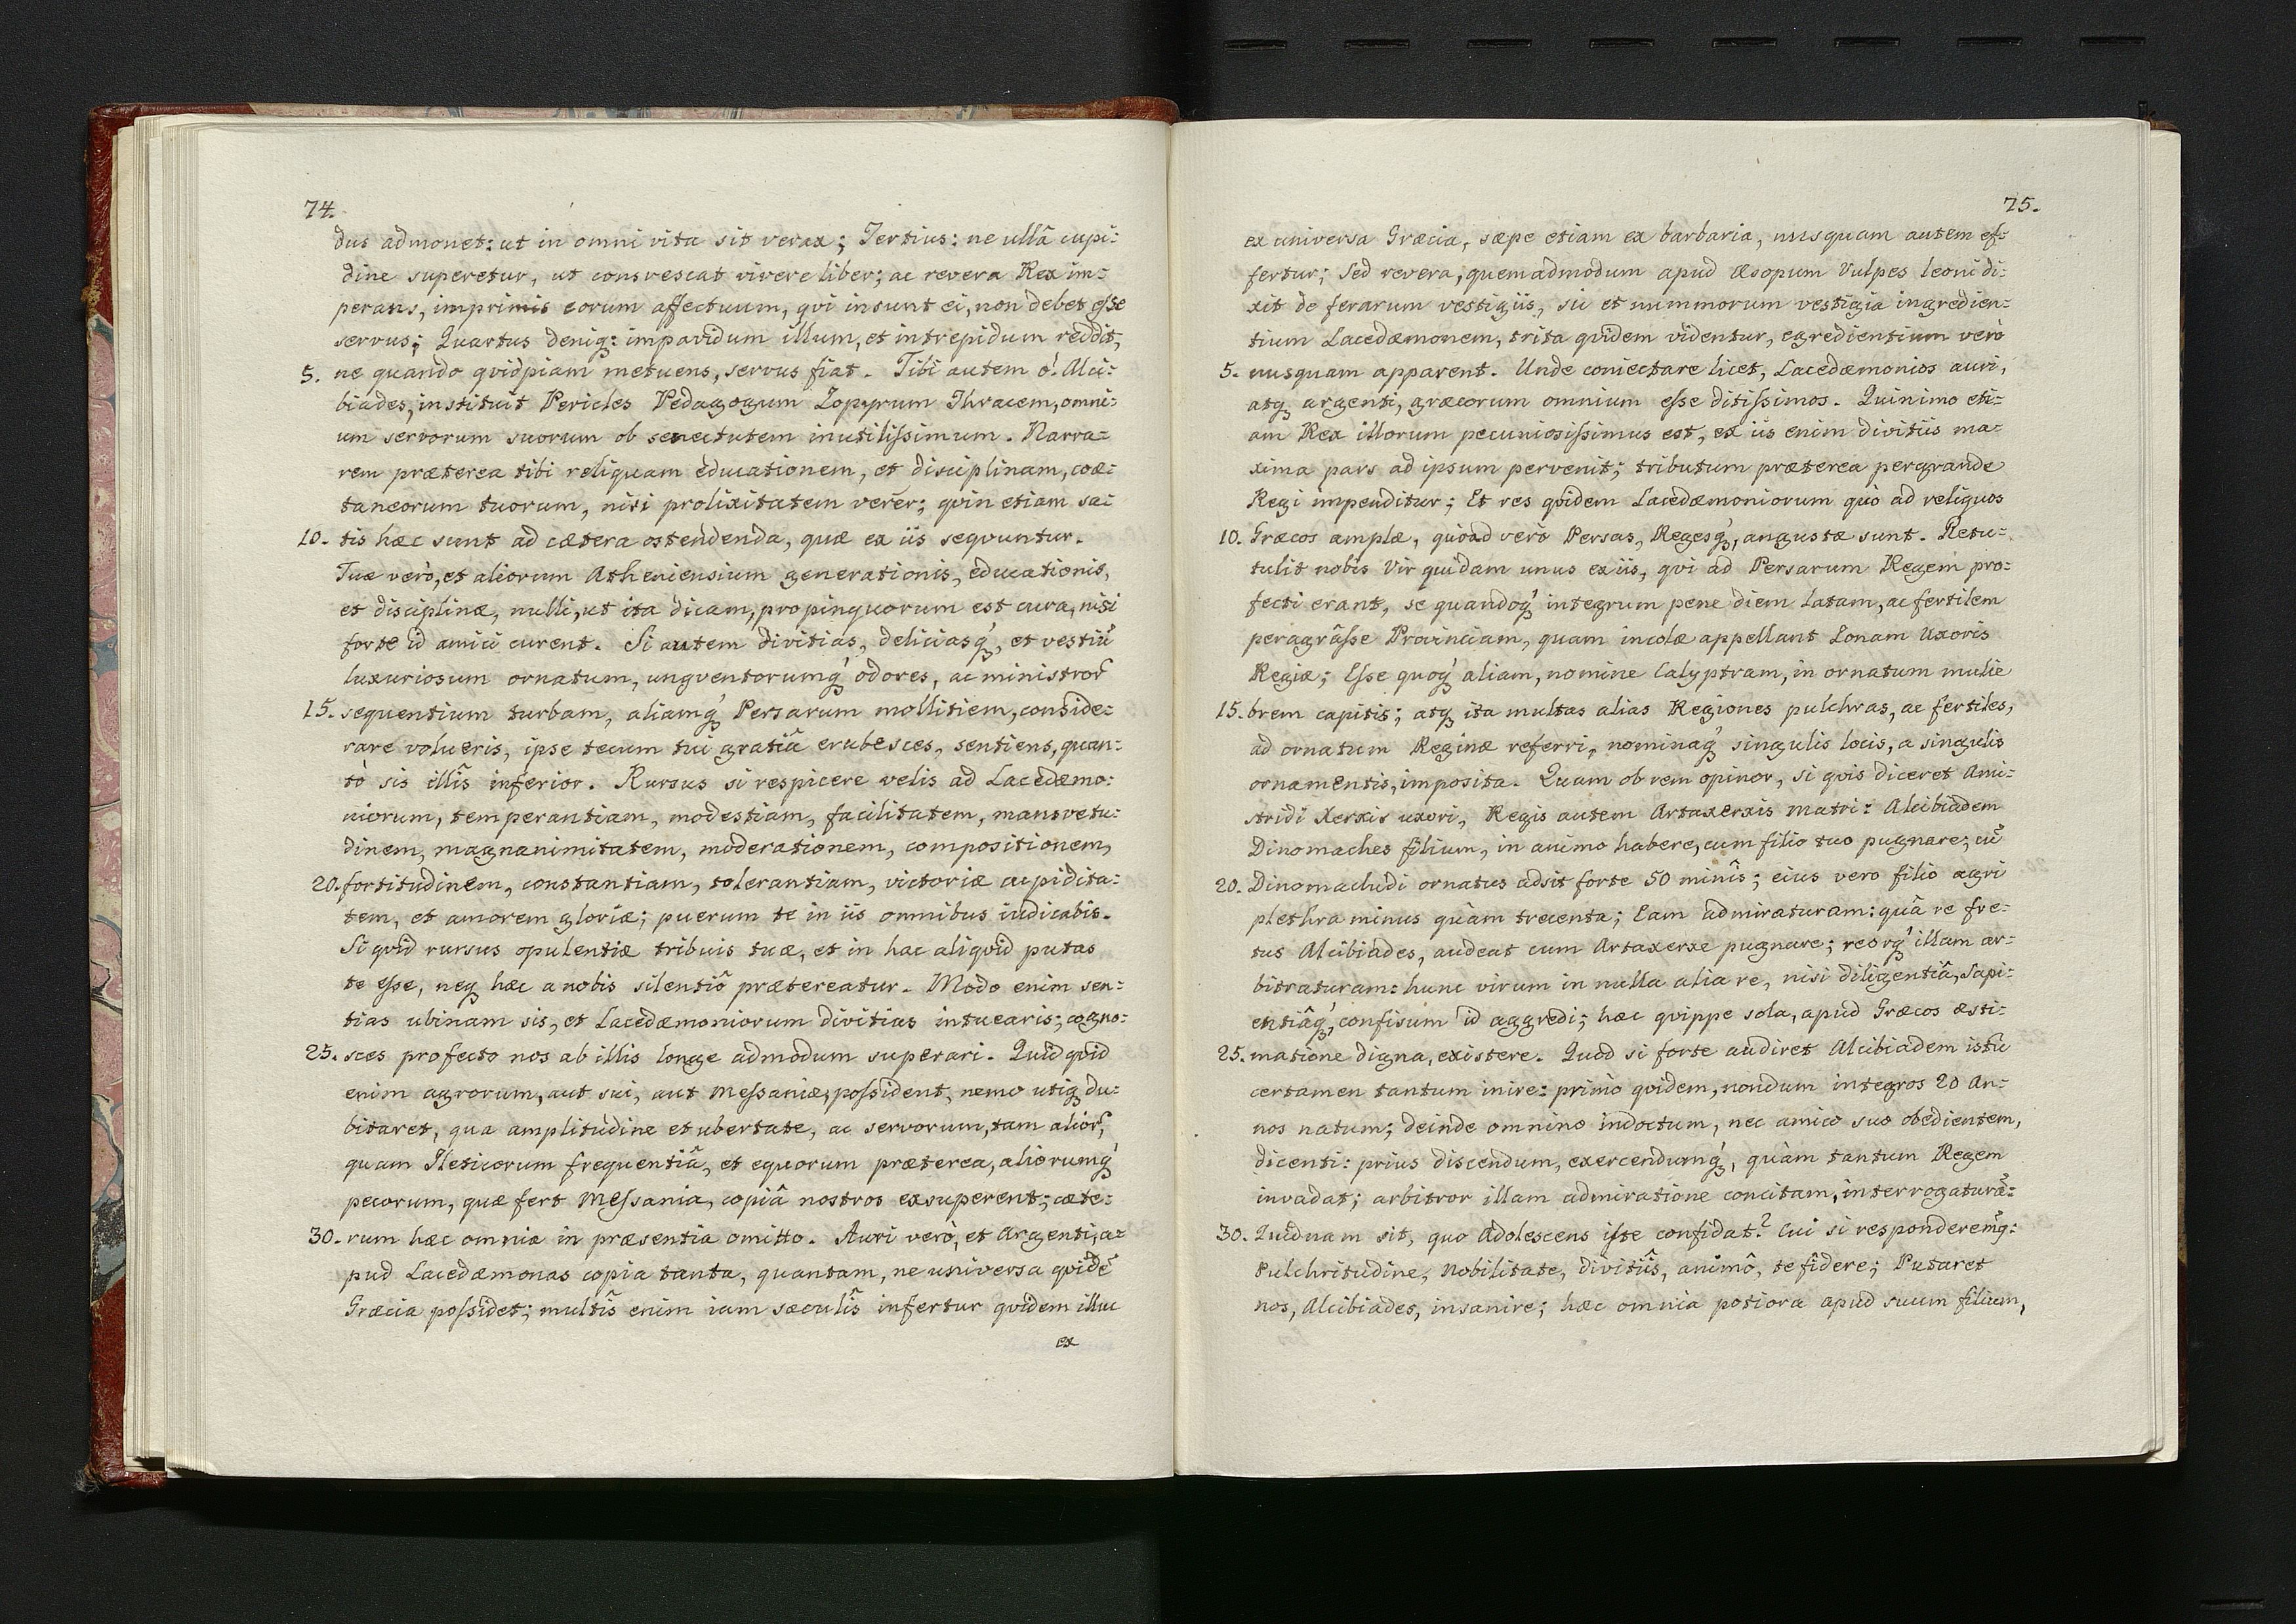 74.
dus admonet: ut in omni vita sit verax; Tertius: ne ullâ cupi:
dine superetur, ut consvescat vivere liber; ac revera Rex im:
perans, imprimis eorum affectuum, qvi insunt ei, non debet eſse
servus; Quartus deniq: impavidum illum, et intrepidum reddit,
5. ne quando qvidpiam metuens, servus fiat. Tibi autem ò! Alci:
biades, instituit Pericles Pedagogum Zopyrum Thracem, omni:
um servorum suorum ob senectutem inutiliſsimum. Narra:
rem præterea tibi reliquam educationem, et disciplinam, coæ:
taneorum tuorum, nisi prolixitatem verer; qvin etiam sa:
10. tis hæc sunt ad cætera ostendenda, quæ ex iis seqvuntur.
Tuæ verò, et aliorum Atheniensium generationis, educationis,
et disciplinæ, nulli, ut ita dicam, propinquorum est cura, nisi
forte id amici curent. Si autem divitias, deliciasq́, et vestiũ
luxuriosum ornatum, ungventorumq́ odores, ac ministror̃
15. sequentium turbam, aliamq́ Persarum mollitiem, conside:
rare volueris, ipse tecum tui gratiâ erubesces, sentiens, quan:
tò sis illîs inferior. Rursus si respicere velis ad Lacedæmo:
niorum, temperantiam, modestiam, facilitatem, mansvetu:
dinem, magnanimitatem, moderationem, compositionem,
20. fortitudinem, constantiam, tolerantiam, victoriæ cupidita:
tem, et amorem gloriæ; puerum te in iis omnibus iudicabis.
Si qvid rursus opulentiæ tribuis tuæ, et in hac aliqvid putas
te eſse, neq hæc a nobis silentiô prætereatur. Modo enim sen:
tias ubinam sis, et Lacedæmoniorum divitias intuearis; cogno:
25. sces profecto nos ab illis longe admodum superari. Quid qvid
enim agrorum, aut sui, aut Meſsaniæ, poſsident, nemo utiq du:
bitaret, qua amplitudine et ubertate, ac servorum, tam alior̃,
quam Ileticorum frequentiâ, et equorum præterea, aliorumq́
pecorum, quæ fert Meſsania, copiâ nostros exsuperent; cæte:
30. rum hæc omnia in præsentia omitto. Auri verò, et Argenti, a:
pud Lacedæmonas copia tanta, quantam, ne universa qvidẽ
Græcia poſsidet; multîs enim iam sæculîs infertur qvidem illuc
ex
75.
ex universa Græcia, sæpe etiam ex barbaria, nusquam autem ef:
fertur; Sed revera, quemadmodum apud Æsopum Vulpes leoni di:
xit de ferarum vestigiis, sic et nummorum vestigia ingredien:
tium Lacedæmonem, trita qvidem videntur, egredientium verò
5. nusquam apparent. Unde coniectare licet, Lacedæmonios auri,
atq argenti, græcorum omnium eſse ditiſsimos. Quinimo eti:
am Rex illorum pecuniosiſsimus est, ex iis enim divitiis ma:
xima pars ad ipsum pervenit; tributum præterea pergrande
Regi impenditur; Et res qvidem Lacedæmoniorum quò ad reliquos
10. Græcos amplæ, quòad verò Persas, Regesq́, angustæ sunt. Retu:
tulit nobis Vir quidam unus ex iis, qvi ad Persarum Regem pro:
fecti erant, se quandoq́ integrum pene diem latam, ac fertilem
peragrâſse Provinciam, quam incolæ appellant Zonam Uxoris
Regiæ; Eſse quoq́ aliam, nomine Calyptram, in ornatum mulie
15. brem capitis; atq ita multas alias Regiones pulchras, ac fertiles,
ad ornatum Reginæ referri, nominaq́ singulis locis, a singulis
ornamentis, imposita. Quam ob rem opinor, si qvis diceret Ami:
stridi Xerxis uxori, Regis autem Artaxerxis Matri: Alcibiadem
Dinomaches filium, in animo habere, cum filio tuo pugnare; cũ
20. Dinomachidi ornatus adsit forte 50 minîs; eius vero filio agri
plethra minus quàm trecenta; Eam admiraturam: quâ re fre:
tus Alcibiades, audeat cum Artaxerxe pugnare; reorq́ illam ar:
bitraturam: hunc virum in nulla alia re, nisi diligentiâ, Sapi:
entiâq́, confisum id aggredi; hæc qvippe sola, apud Græcos æsti:
25. matione digna, existere. Quod si forte audiret Alcibiadem istũ
certamen tantum inire: primò qvidem, nondum integros 20 An:
nos natum; deinde omnino indoctum, nec amico suo obedientem,
dicenti: prius discendum, exercendumq́, quàm tantum Regem
invadat; arbitror illam admiratione concitam, interrogaturã:
30. Quidnam sit, quo Adolescens iste confidat? Cui si responderemq:
Pulchritudine, Nobilitate, divitiîs, animô, te fidere; Putaret
nos, Alcibiades, insanire; hæc omnia potiora apud suum filium,